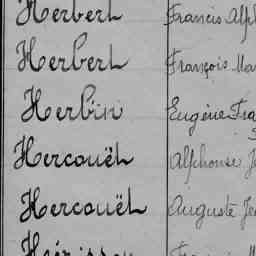 Herbert Francis Alph
Herbert François Ma
Herbin Eugène Fra
Hercouët Alphonse J
Hercouët Auguste Je
Hérisson